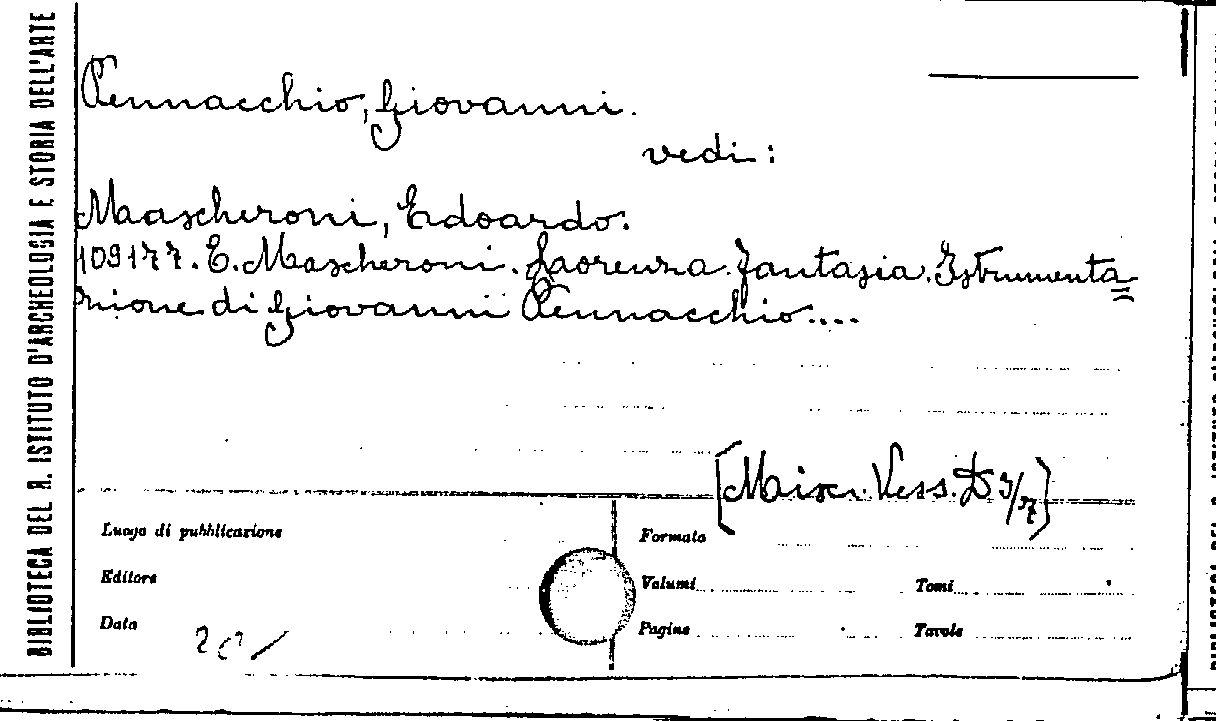 BIBLIOTECA DEL R. ISTITUTO D'ARCHEOLOGIA E STORIA DELL'ARTE
Pennacchio, Giovanni.
vedi:
Mascheroni, Edoardo.
109177. E. Mascheroni. Lorenza. Fantasia. Istrumenta=
zione di Giovanni Pennacchio....
[Misc. Vess. D 3/37]
Luogo di pubblicazione
Formato
Editore
Volumi
Tomi
Data
Pagine
Tavole